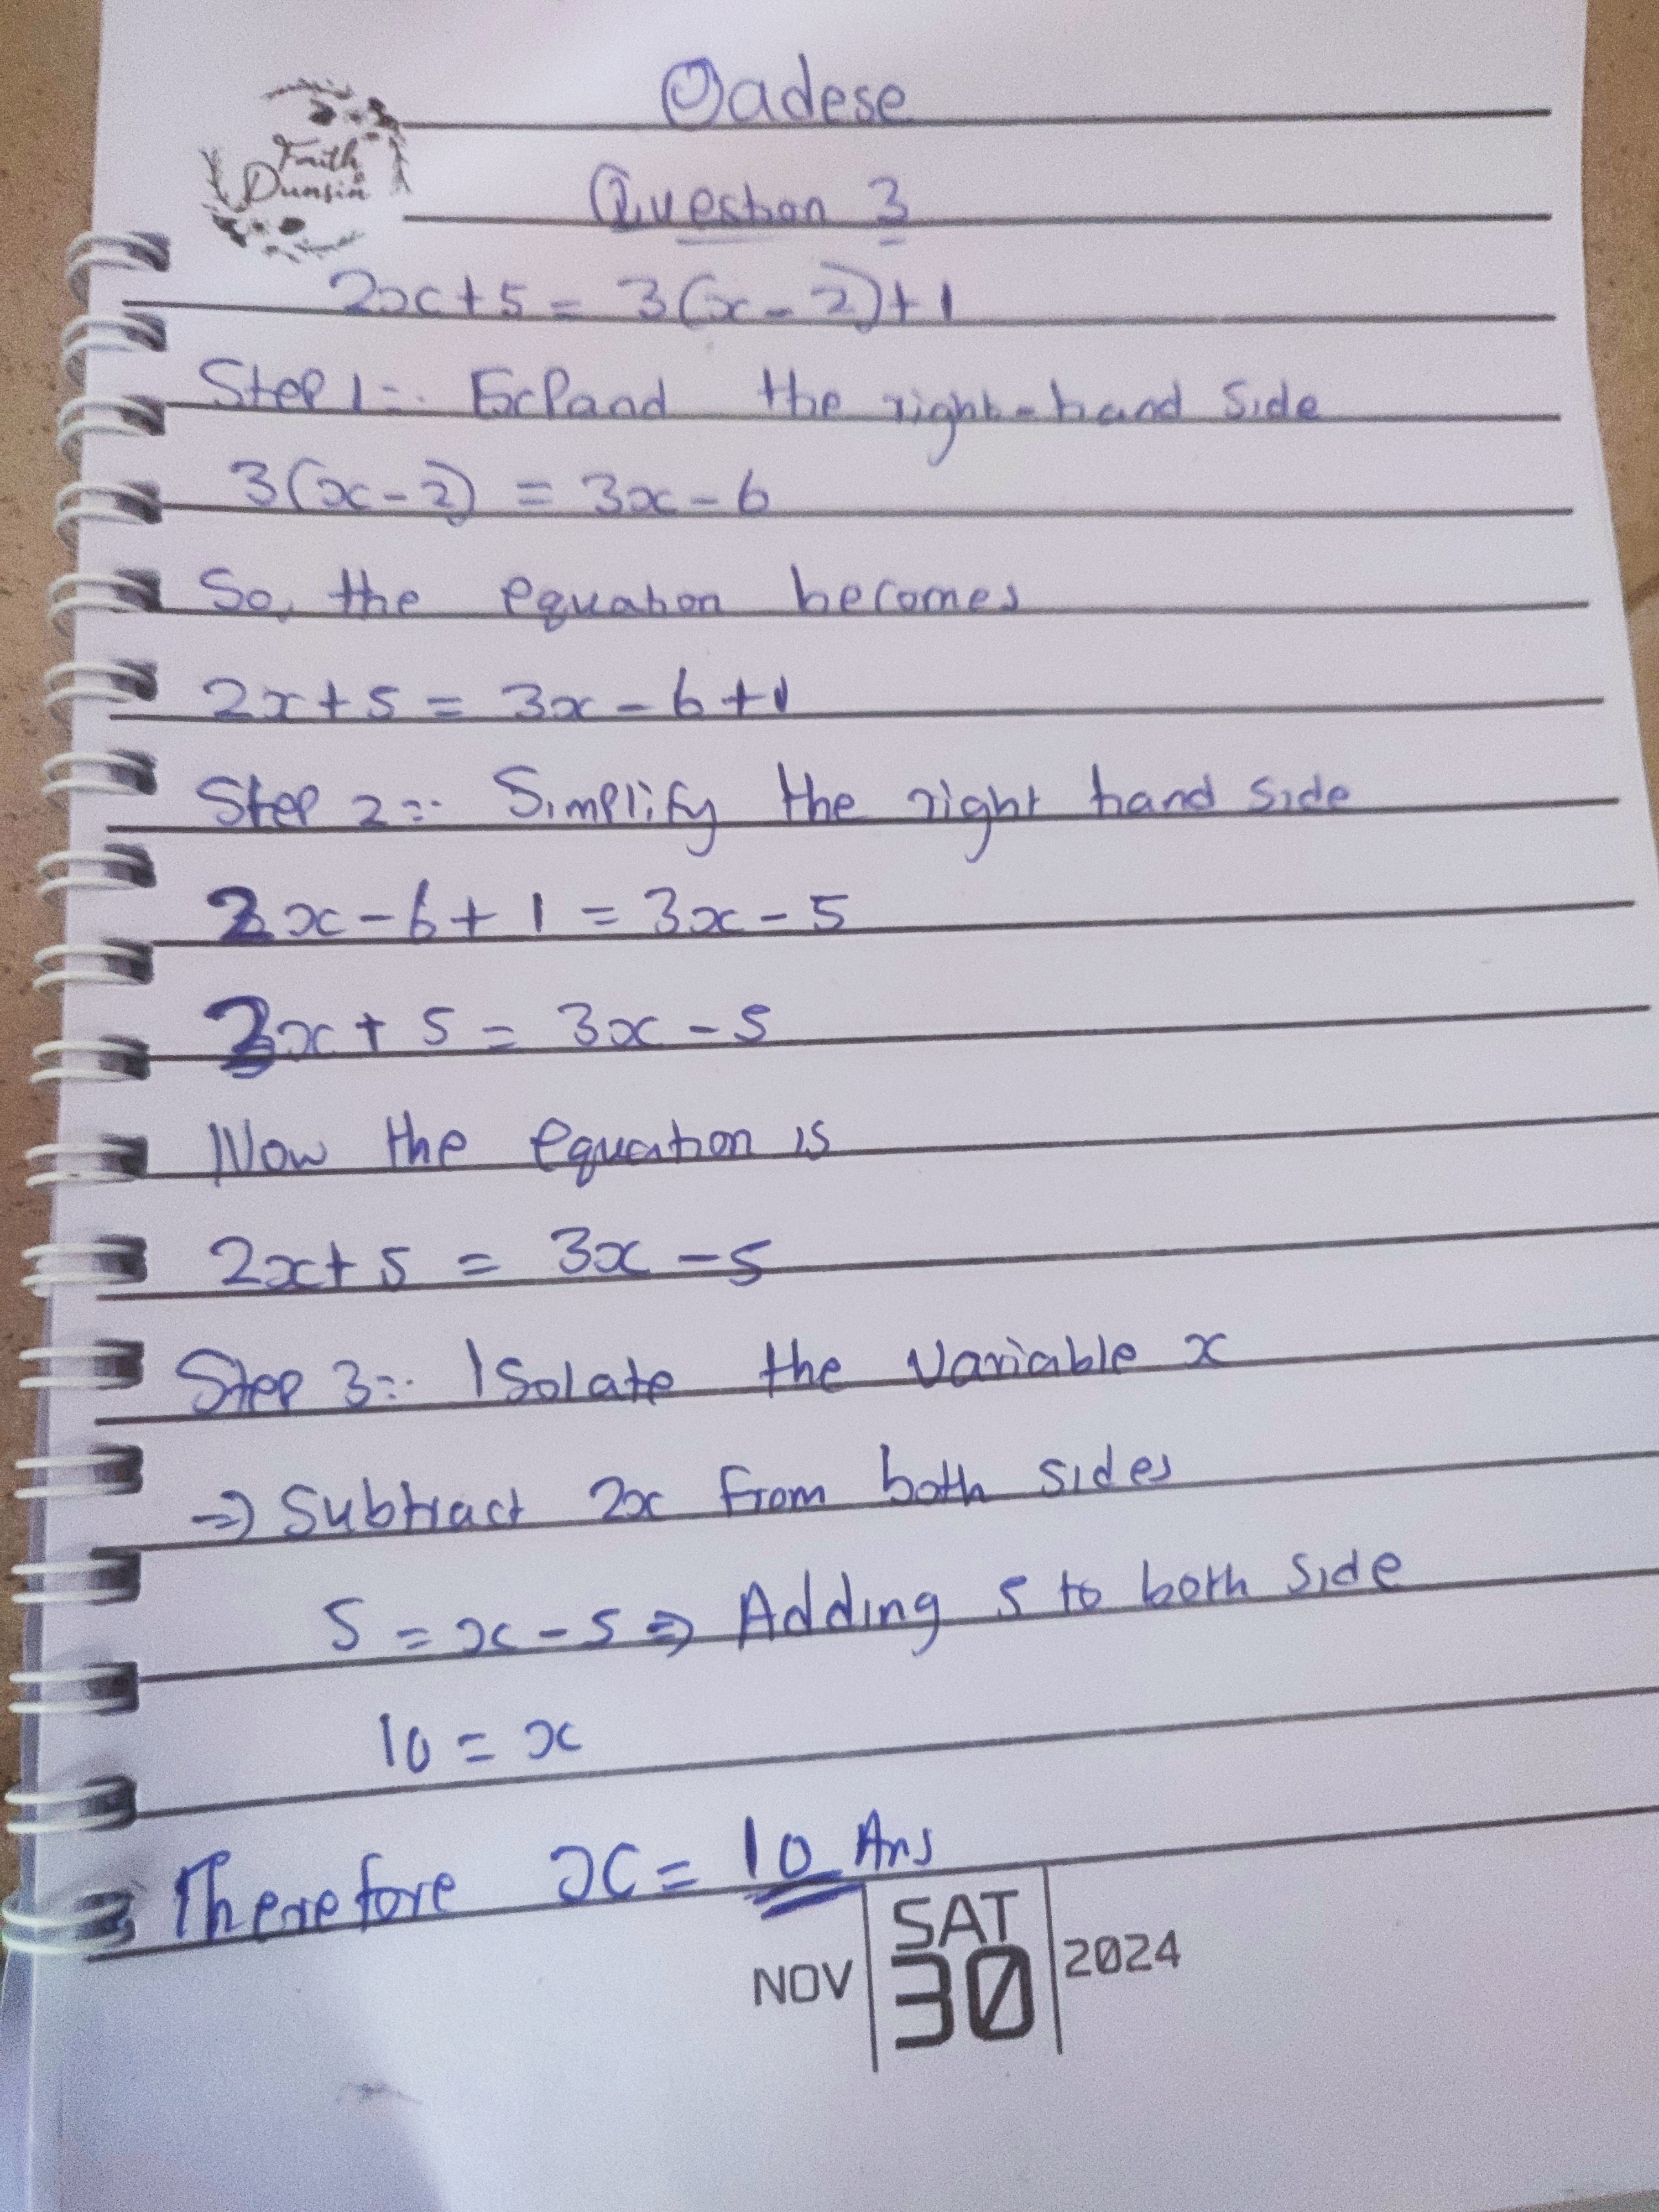 Oadese
Faith
Dunsin
Question 3
2x+5 = 3(x-2)+1
Step 1:- Expand the right-hand side
3(x-2) = 3x-6
So, the equation becomes
2x+5 = 3x-6+1
Step 2:- Simplify the right hand side
3x-6+1 = 3x-5
2x+5 = 3x-5
Now the equation is
2x+5 = 3x-5
Step 3:- Isolate the variable x
⇒ Subtract 2x from both sides
5 = x-5 ⇒ Adding 5 to both side
10 = x
Therefore x = 10 Ans
NOV SAT 30 2024